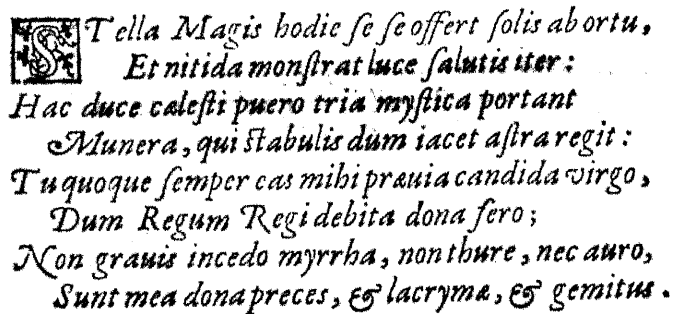 STella Magis hodie se se offert solis ab ortu,
Et nitida monstrat luce salutis iter:
Hac duce cælesti puero tria mystica portant
Munera, qui stabulis dum iacet astra regit:
Tu quoque semper eas mihi præuia candida virgo,
Dum Regum Regi debita dona fero;
Non grauis incedo myrrha, non thure, nec auro,
Sunt mea dona preces, & lacrymæ, & gemitus.